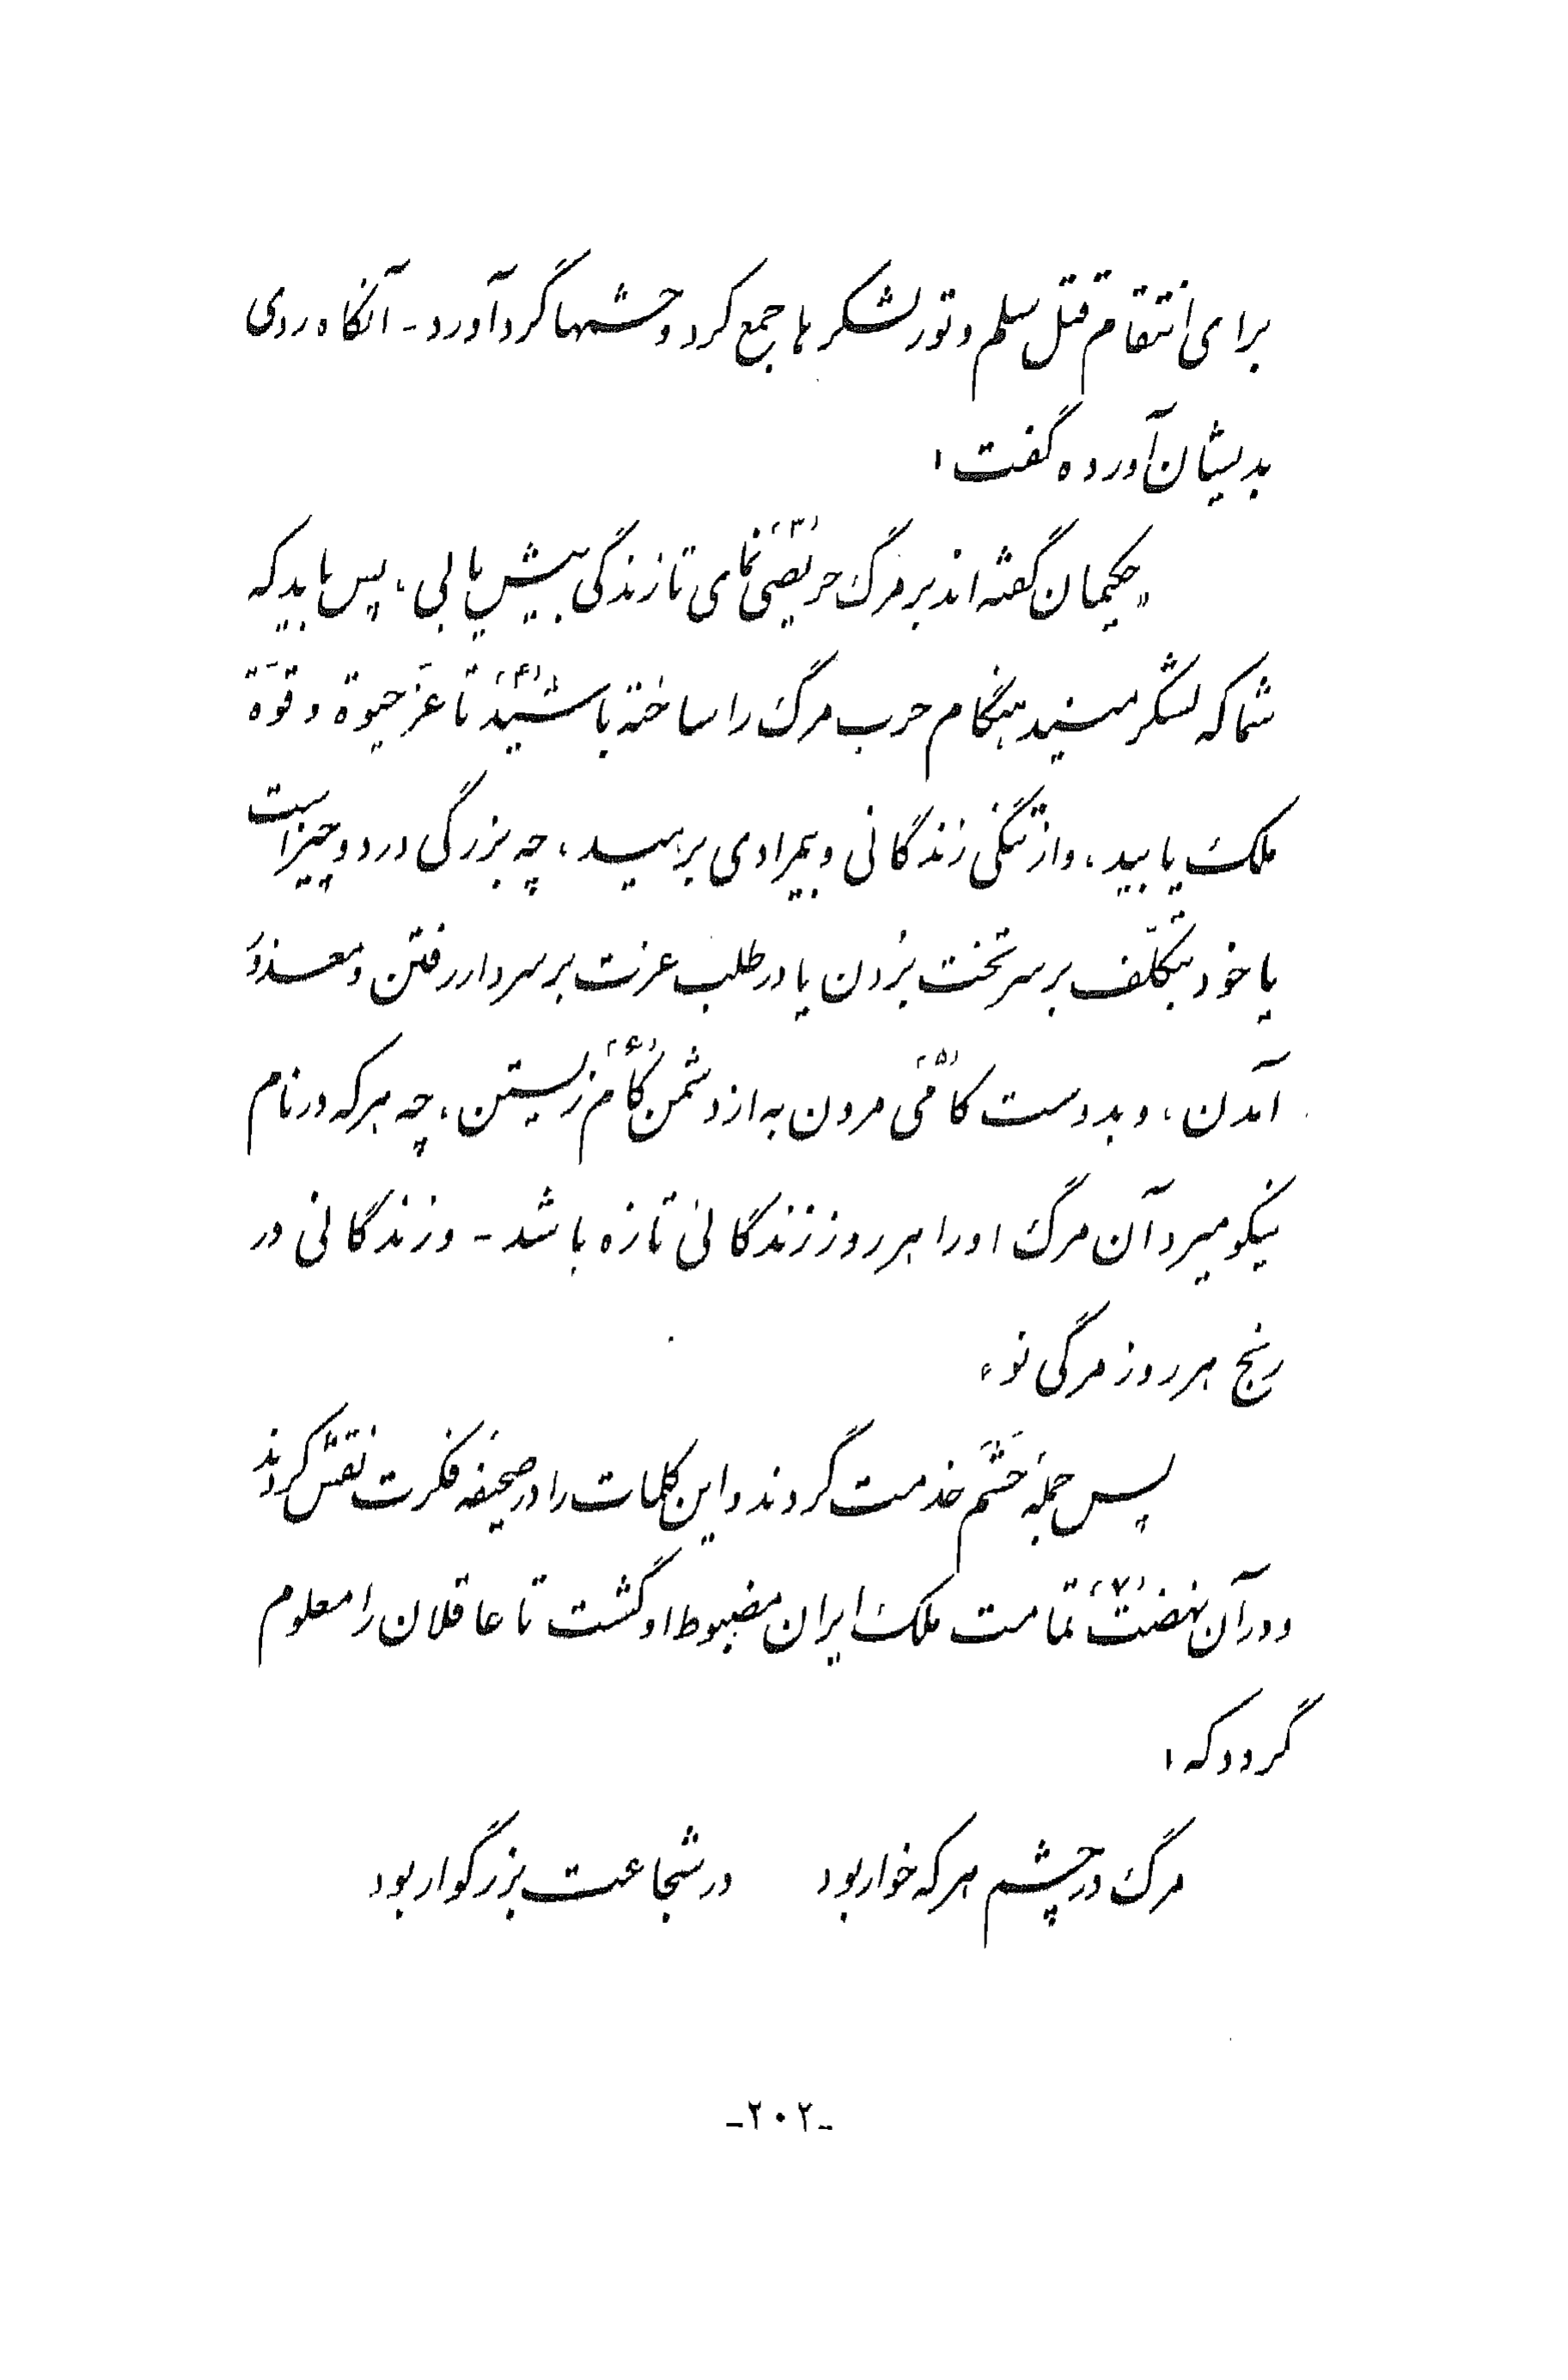 برای انتقام قتل سلم و تور لشکرها جمع کرد و حشمها گرد آورد - آنگاه روی
بدیشان آورده گفت :
«حکیمان گفته‌اند بر مرگ حریصی (۳) نمای تا زندگی بیش یابی ، پس باید که
شما که لشگر منید هنگام حرب مرگ را ساخته باشید (۴) تا عزّ حیوة و قوّة
ملک یابید ، و از تنگی زندگانی و بیمرادی برهید ، چه بزرگی در دو چیز است
یا خود بتکلّف بر سر تخت بُدن یا در طلب عزت بر سر دار رفتن و معذور
آمدن ، و بدوست کامی (۵) مردن به از دشمن کام (۶) زیستن ، چه هر که در نام
نیکو میرد آن مرگ او را هر روز زندگانی تازه باشد - و زندگانی در
رنج هر روز مرگی نو»
پس جمله حَشَم خدمت کردند و این کلمات را در صحیفه فکرت نقش کردند
و در آن نهضت (۷) تمامت ملک ایران مضبوط او گشت تا عاقلان را معلوم
گردد که :
مرگ در چشم هر که خوار بود در شجاعت بزرگوار بود
-۲۰۲-